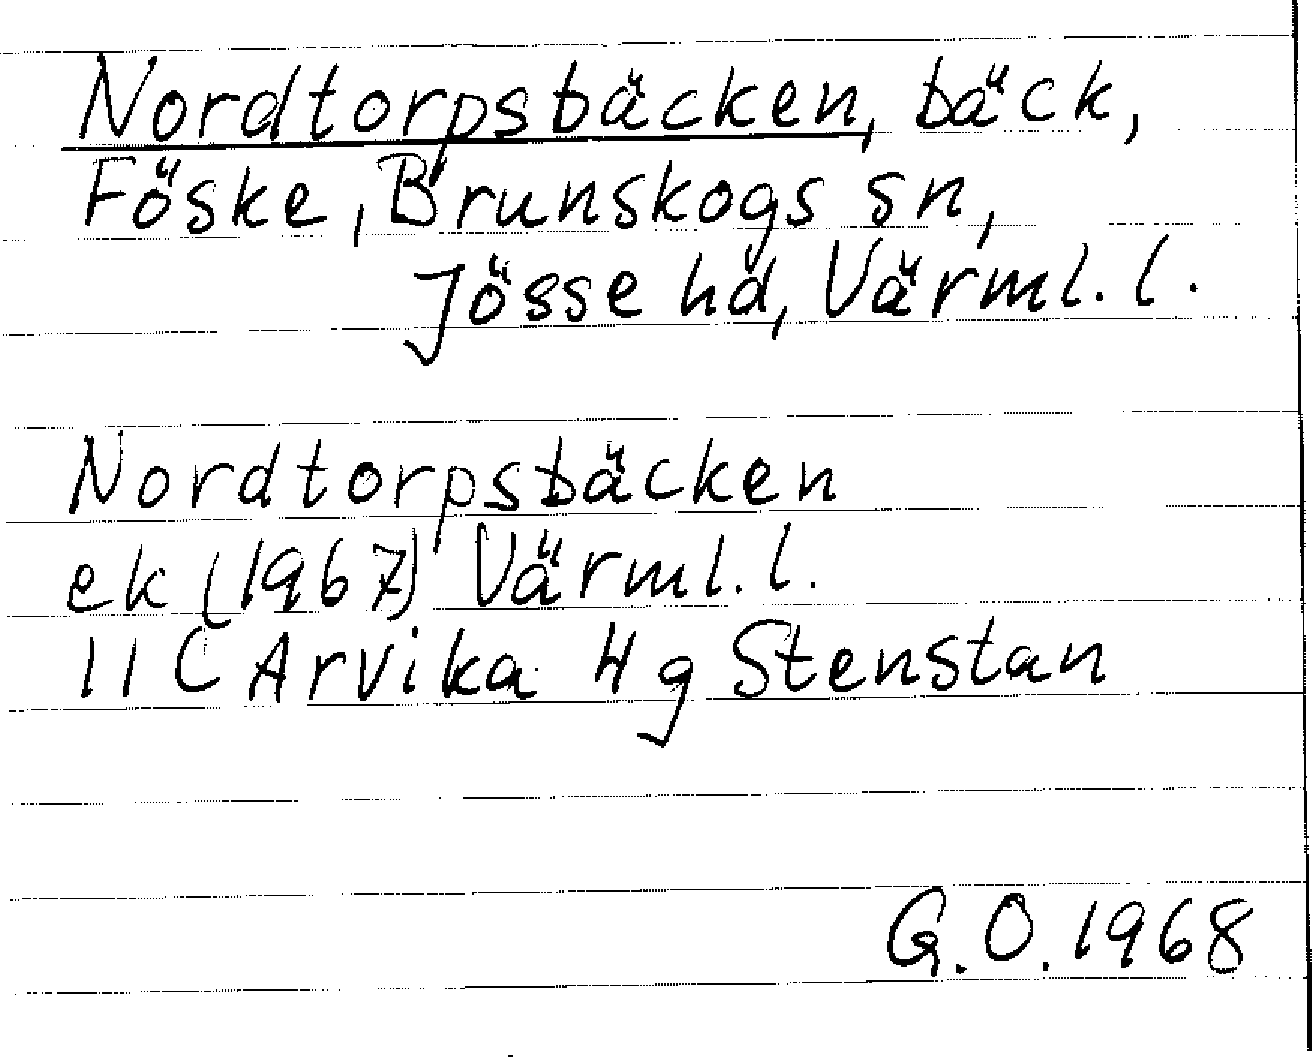 Nordtorpsbäcken, bäck,
Föske, Brunskogs sn,
Jösse hd, Värml. l.
Nordtorpsbäcken
ek (1967) Värml. l.
11 C Arvika 4 g Stenstan
G. O. 1968